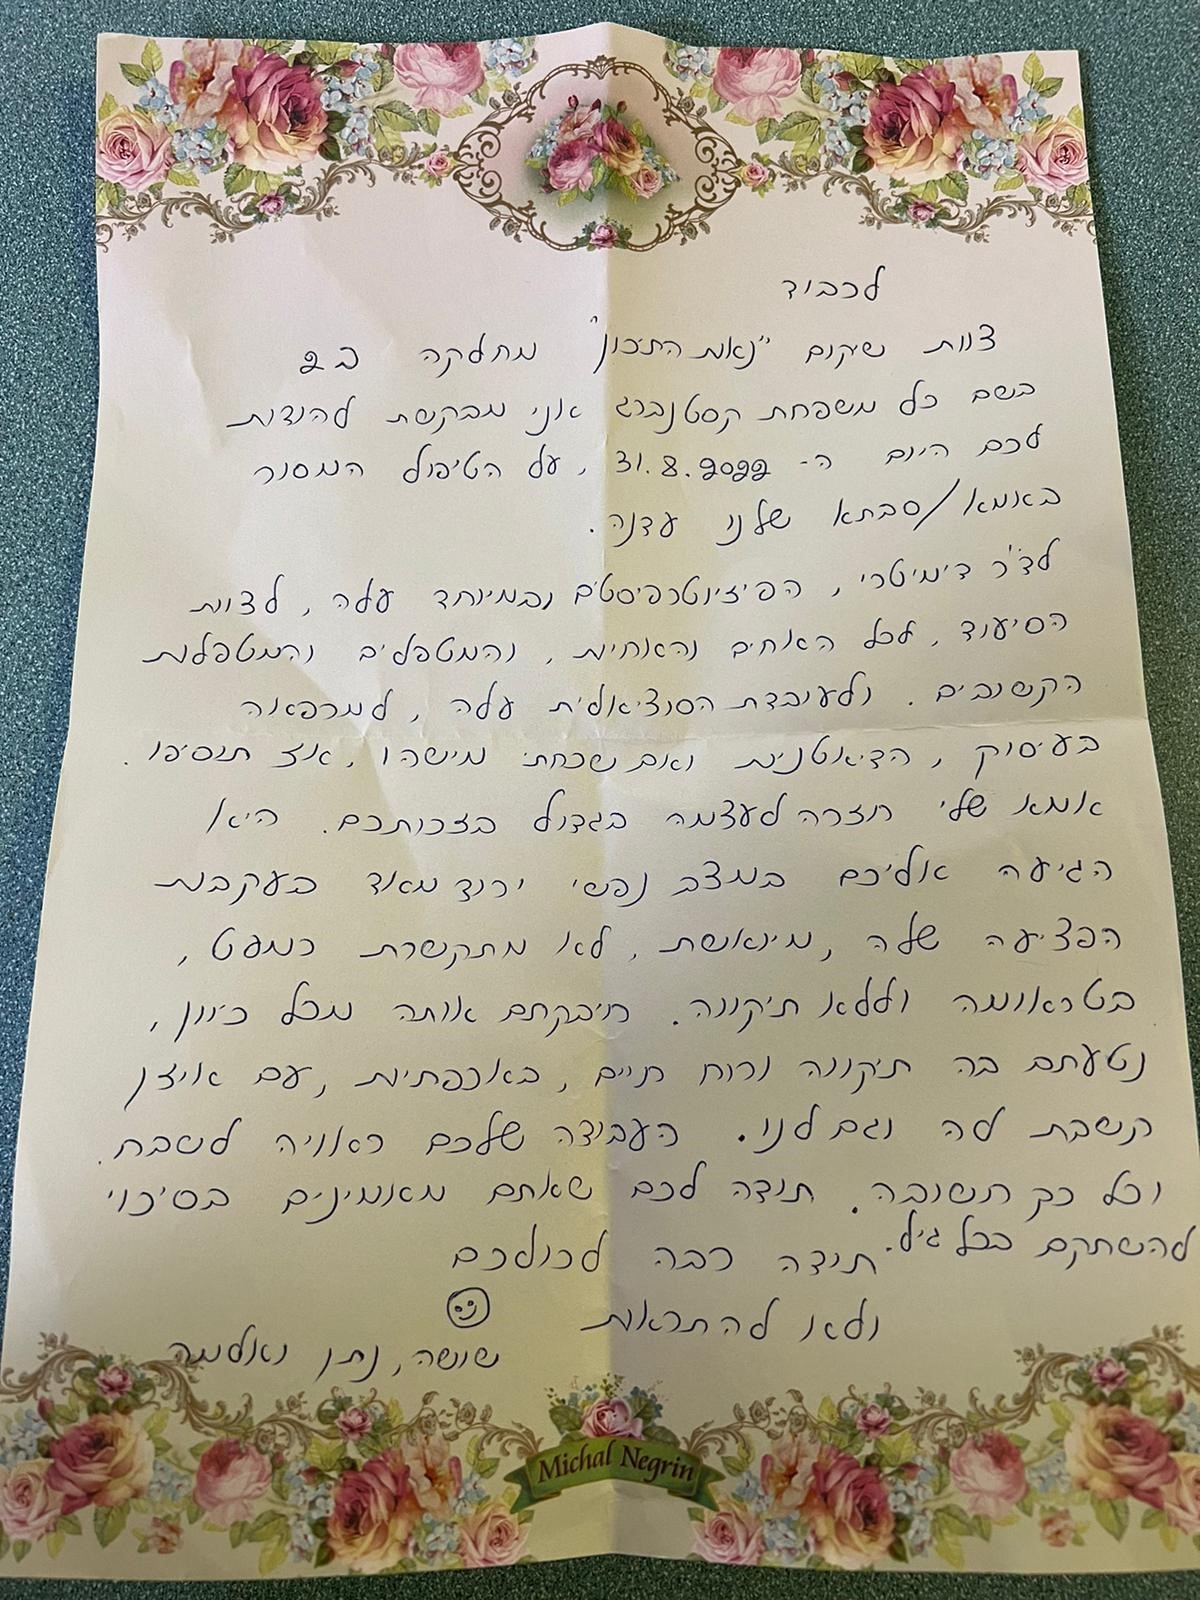 לכבוד
צוות שיקום "נאות התיכון" מחלקה ב2
בשם כל משפחת קסטנברג אני מבקשת להודות
לכם היום ה- 31.8.2022, על הטיפול המסור
באמא/סבתא שלנו עדנה.
לד"ר דימיטרי, הפיזיוטרפיסטים ובמיוחד עלה, לצוות
הסיעוד, לכל האחים והאחיות, והמטפלים והמטפלות
הקשובים. ולעובדת הסוציאלית עלה, למרפאה
בעיסוק, הדיאטנית ואם שכחתי מישהו, אז תוסיפו.
אמא שלי חזרה לעצמה בגדול בזכותכם. היא
הגיעה אליכם במצב נפשי ירוד מאוד בעקבות
הפציעה שלה, מיואשת, לא מתקשרת כמעט,
בטראומה וללא תיקווה. חיבקתם אותה מכל כיוון,
נטעתם בה תיקווה ורוח חיים, באכפתיות, עם אוזן
קשבת לה וגם לנו. העבודה שלכם ראויה לשבח.
וכל כך חשובה. תודה לכם שאתם מאמינים בסיכוי
להשתקם בכל גיל.
תודה רבה לכולכם
ולא להתראות
שושה, נתן ואלמה
Michal Negrin